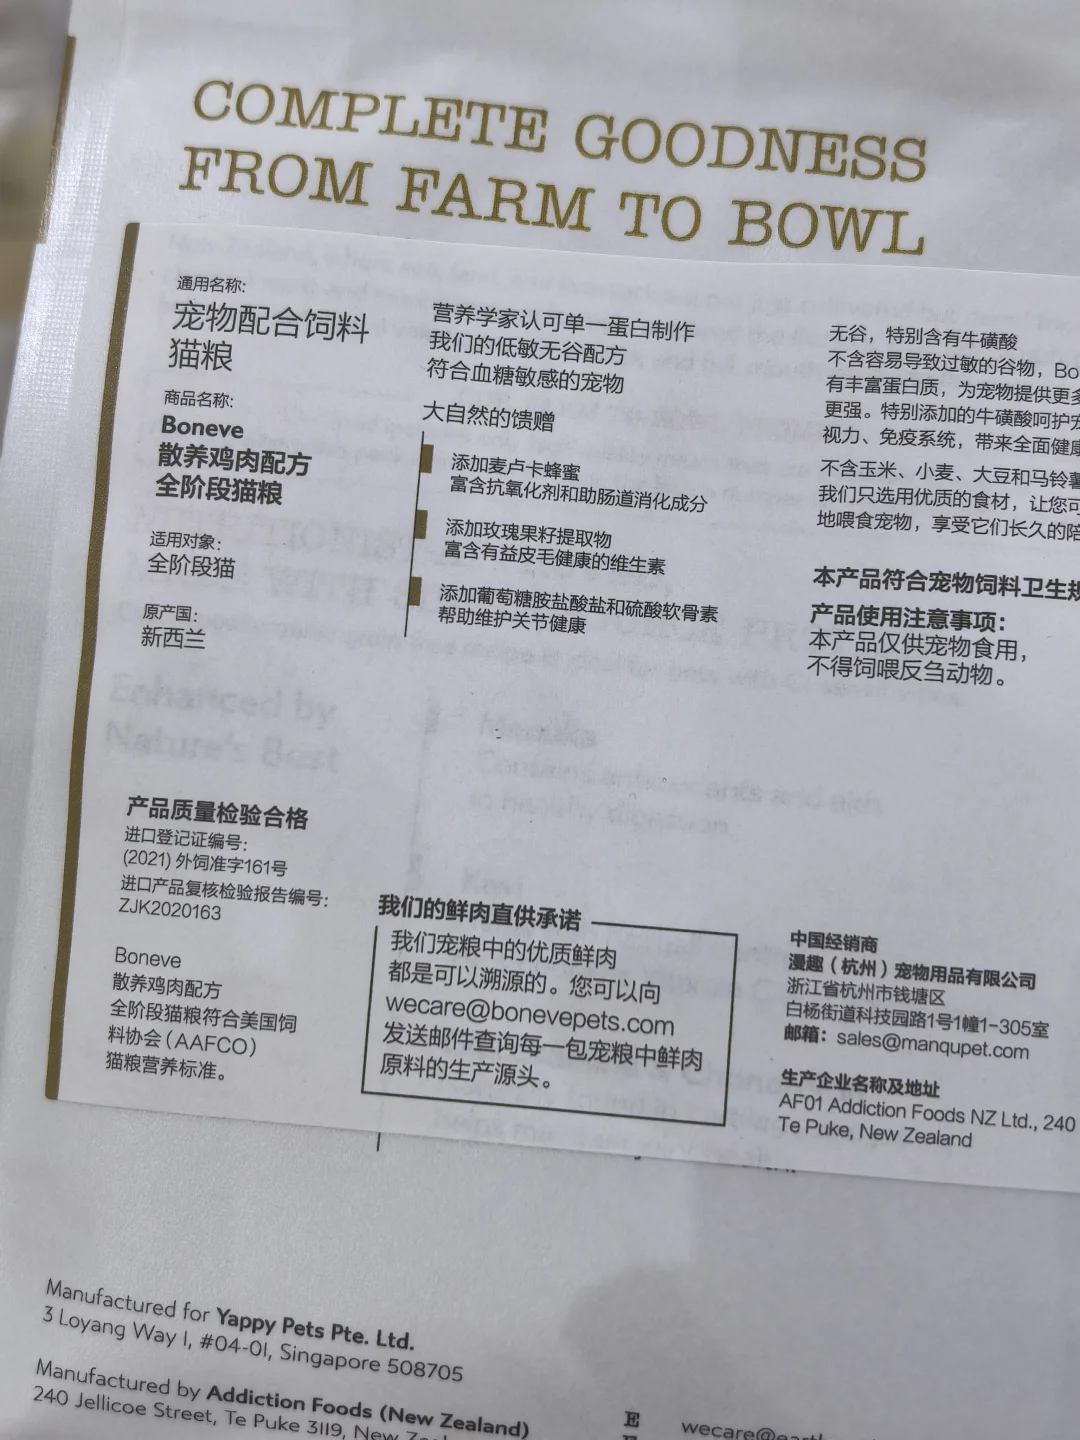 COMPLETE GOODNESS
FROM FARM TO BOWL
通用名称:
宠物配合饲料
猫粮
商品名称:
Boneve
散养鸡肉配方
全阶段猫粮
适用对象:
全阶段猫
原产国:
新西兰
营养学家认可单一蛋白制作
我们的低敏无谷配方
符合血糖敏感的宠物
大自然的馈赠
添加麦卢卡蜂蜜
富含抗氧化剂和助肠道消化成分
添加玫瑰果籽提取物
富含有益皮毛健康的维生素
添加葡萄糖胺盐酸盐和硫酸软骨素
帮助维护关节健康
无谷，特别含有牛磺酸
不含容易导致过敏的谷物，Bo
有丰富蛋白质，为宠物提供更多
更强。特别添加的牛磺酸呵护宠
视力、免疫系统，带来全面健康
不含玉米、小麦、大豆和马铃薯
我们只选用优质的食材，让您可
地喂食宠物，享受它们长久的陪
本产品符合宠物饲料卫生规
产品使用注意事项：
本产品仅供宠物食用，
不得饲喂反刍动物。
Enhanced by
Nature's Best
产品质量检验合格
进口登记证编号:
(2021) 外饲准字161号
进口产品复核检验报告编号:
ZJK2020163
Boneve
散养鸡肉配方
全阶段猫粮符合美国饲
料协会（AAFCO）
猫粮营养标准。
我们的鲜肉直供承诺
我们宠粮中的优质鲜肉
都是可以溯源的。您可以向
wecare@bonevepets.com
发送邮件查询每一包宠粮中鲜肉
原料的生产源头。
中国经销商
漫趣（杭州）宠物用品有限公司
浙江省杭州市钱塘区
白杨街道科技园路1号1幢1-305室
邮箱：sales@manqupet.com
生产企业名称及地址
AF01 Addiction Foods NZ Ltd., 240
Te Puke, New Zealand
Manufactured for Yappy Pets Pte. Ltd.
3 Loyang Way 1, #04-01, Singapore 508705
Manufactured by Addiction Foods (New Zealand)
240 Jellicoe Street, Te Puke 3119, New Zeal
E wecare@eart